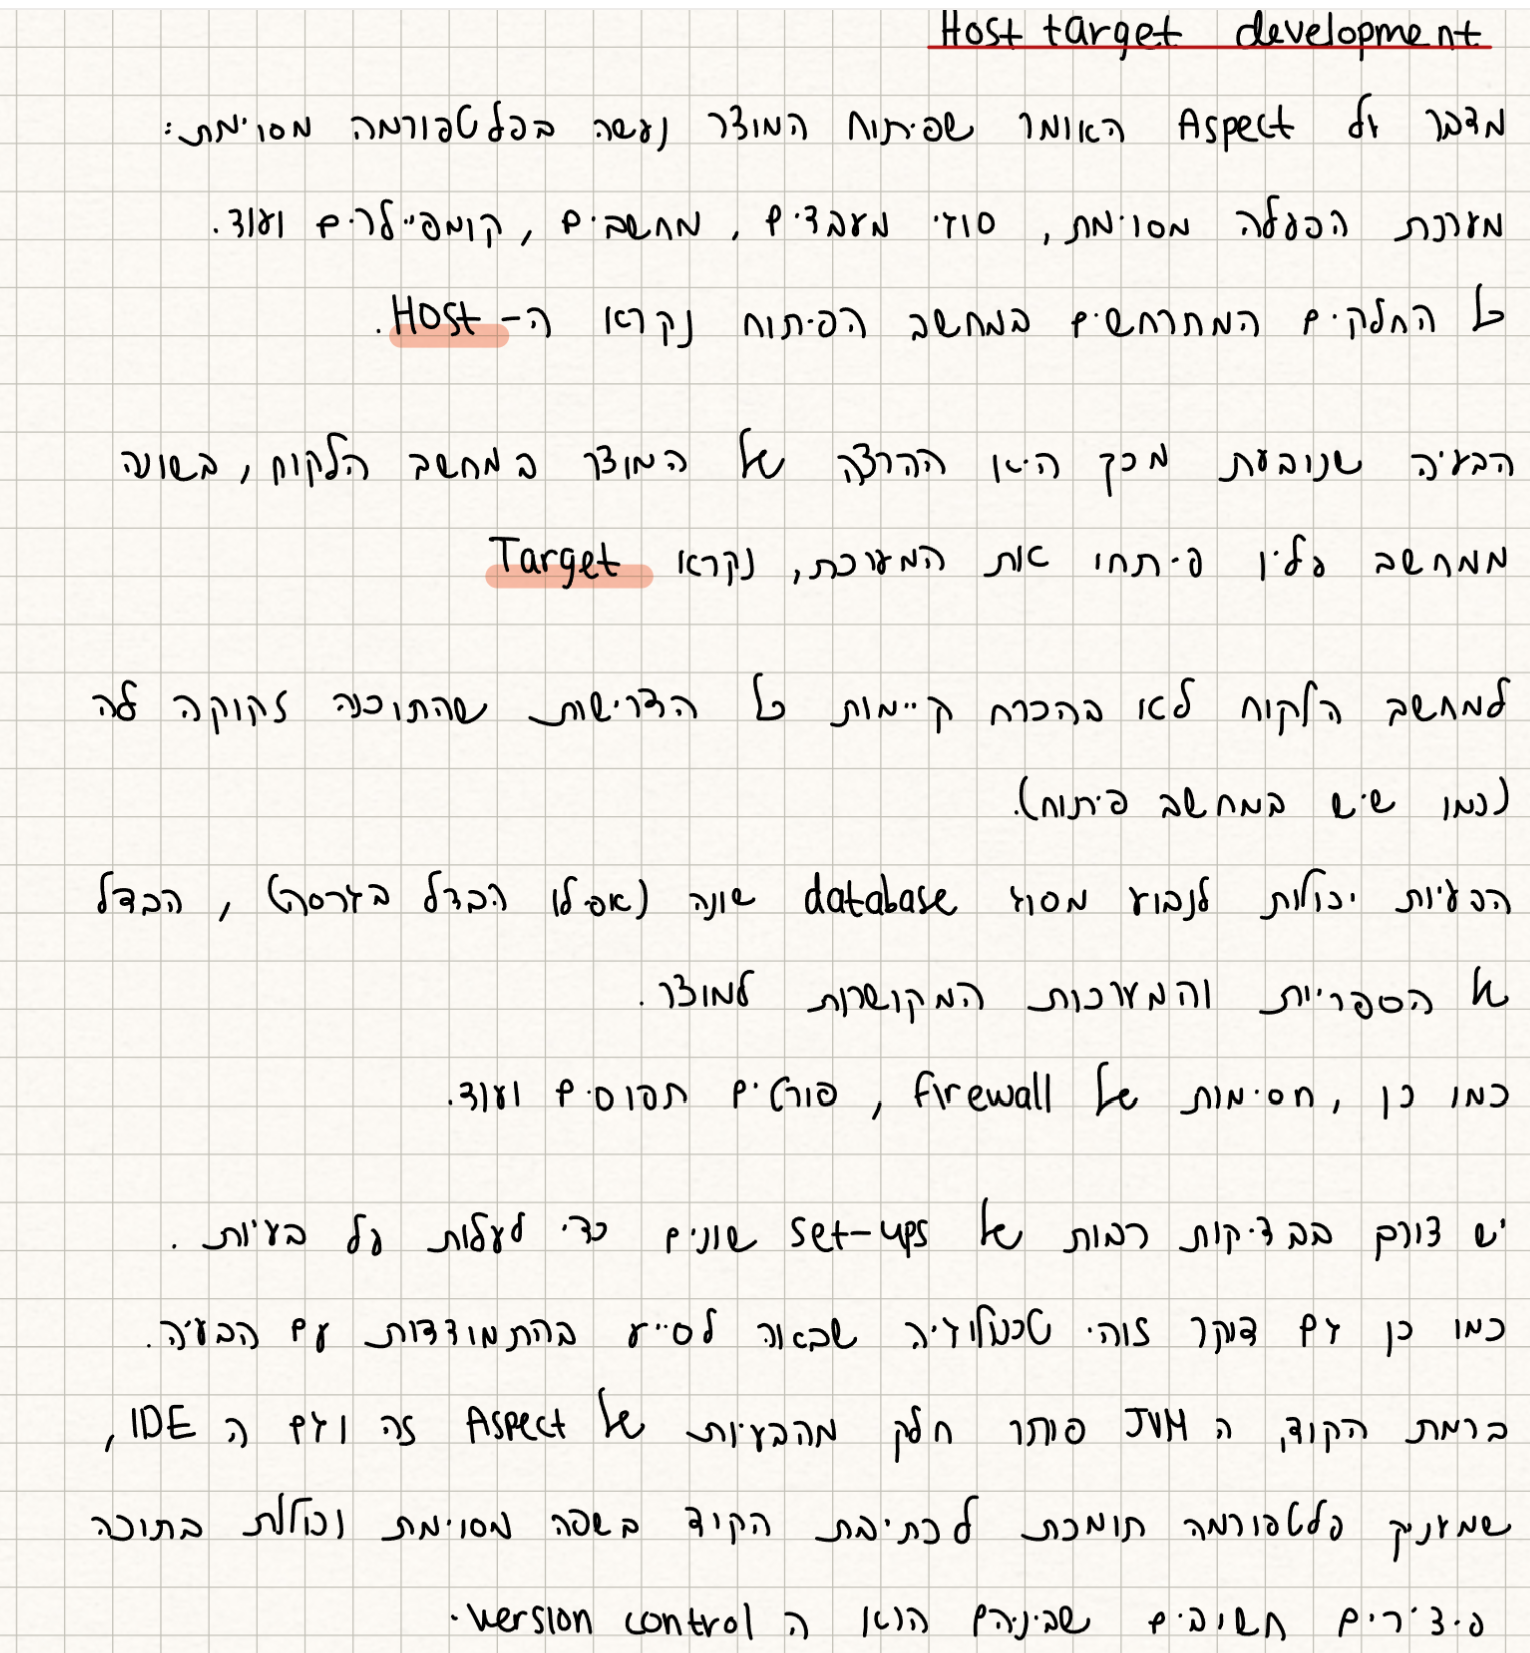 Host target development
מדבר על Aspect האומר שפיתוח המוצר נעשה בפלטפורמה מסוימת:
מערכת הפעלה מסוימת, סוגי מעבדים, מחשבים, קומפיילרים ועוד.
כל החלקים המתרחשים במחשב הפיתוח נקרא ה- Host.
הבעיה שנובעת מכך היא ההרצה של המוצר במחשב הלקוח, בשונה
ממחשב עליו פיתחו את המערכת, נקרא Target
למחשב הלקוח לא בהכרח קיימות כל הדרישות שהתוכנה זקוקה לה
(כמו שיש במחשב פיתוח).
הבעיות יכולות לנבוע מסוג database שונה (אפילו הבדל בגרסה), הבדל
של הספריות והמערכות המקושרות למוצר.
כמו כן, חסימות של firewall, פורטים תפוסים ועוד.
יש צורם בבדיקות רבות של set-ups שונים כדי לעלות על בעיות.
כמו כן גם דוקר זוהי טכנולוגיה שבאה לסייע בהתמודדות עם הבעיה.
ברמת הקוד, ה JVM פותר חלק מהבעיות של Aspect זה וגם ה IDE,
שמעניק פלטפורמה תומכת לכתיבת הקוד בשפה מסוימת וכוללת בתוכה
פיצ'רים חשובים שביניהם הוא ה version control.